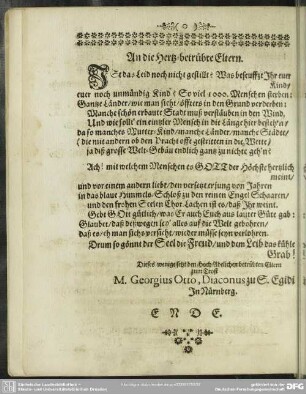 An die Hertz-betrübte Eltern.
IST das Leid noch nicht gestillt? Was beseufftzt Ihr euer
Kind/
euer noch unmündig Kind? So viel 1000. Menschen sterben:
Gantze Länder/ wie man sieht/ öffters in den Grund verderben:
Manche schön erbaute Stadt muß verstäuben in den Wind.
Und wie solt' ein eintzler Mensch in die Länge hier besteh'n/
da so manches Mutter-Kind/ manche Länder/ manche Städte/
ja das grosse Welt-Gebäu endlich gantz zu nichte geh'n?
Ach! mit welchem Menschen es GOTT der Höchste hertzlich
meint/
und vor einem andern liebt/ den versetzt er jung von Jahren
in das blaue Himmels-Schloß zu den reinen Engel Schaaren/
und den frohen Seelen Chor. Lachen ist es/ daß Ihr weint.
Gebt GOtt gütlich/ was Er auch Euch aus lauter Güte gab:
Glaubet/ daß deßwegen sey alles auf die Welt gebohren/
daß es/ eh man sichs versicht/ wieder müsse seyn verlohren.
Drum so gönnt der Seel die Freud/ und dem Leib das kühle
Grab!
Dieses wenige setzt den Hoch-Adelichen betrübten Eltern
zum Trost
M. Georgius Otto, Diaconus zu S. Egidi
In Nürnberg.
E N D E.